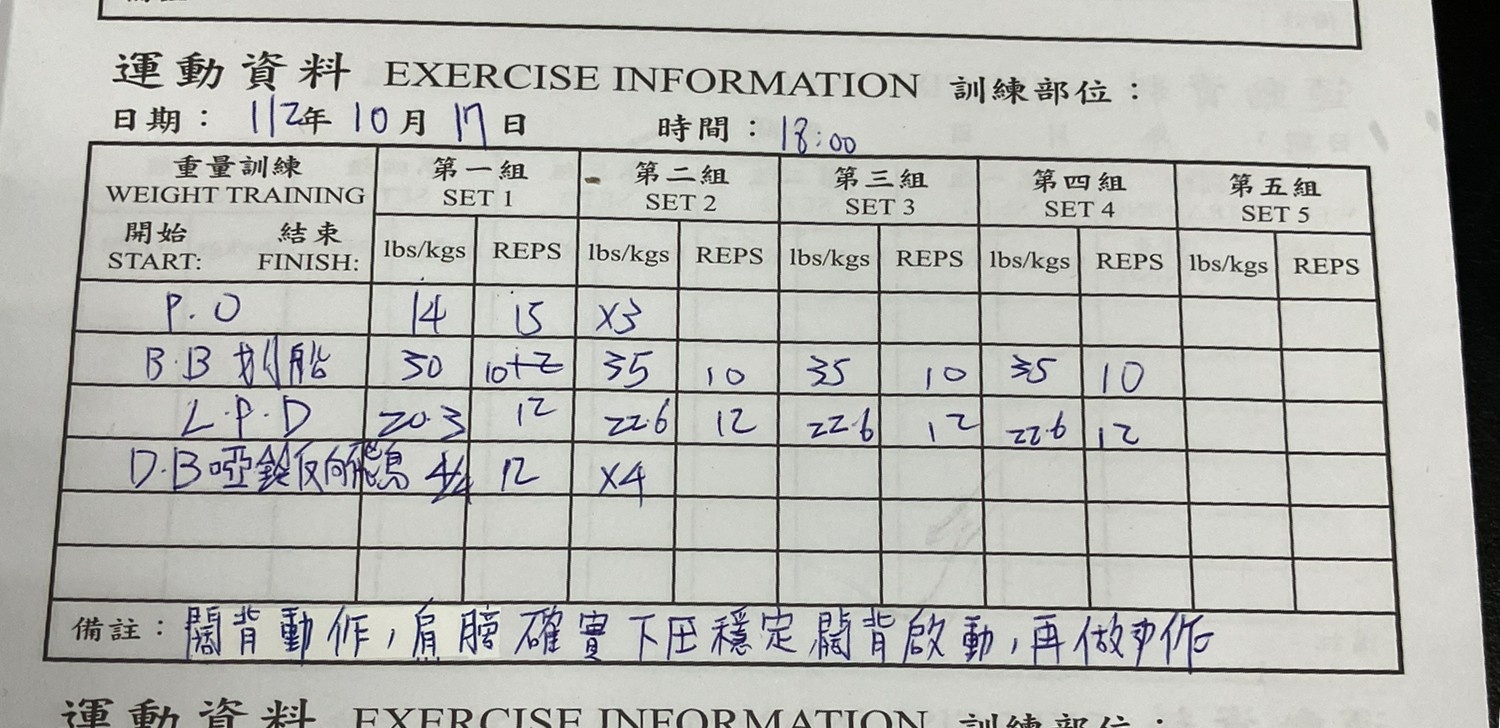 運動資料 EXERCISE INFORMATION 訓練部位：
日期： 112年 10月 17日 時間：18:00
重量訓練 第一組 第二組 第三組 第四組 第五組
WEIGHT TRAINING SET 1 SET 2 SET 3 SET 4 SET 5
開始 結束
START: FINISH: lbs/kgs REPS lbs/kgs REPS lbs/kgs REPS lbs/kgs REPS lbs/kgs REPS
P.O 14 15 x3
B.B 划船 30 10+2 35 10 35 10 35 10
L.P.D 20.3 12 22.6 12 22.6 12 22.6 12
D.B啞鈴反向飛鳥 4/4 12 x4
備註：闊背動作，肩膀確實下压穩定闊背啟動，再做動作
運動資料 EXERCISE INFORMATION 訓練部位：